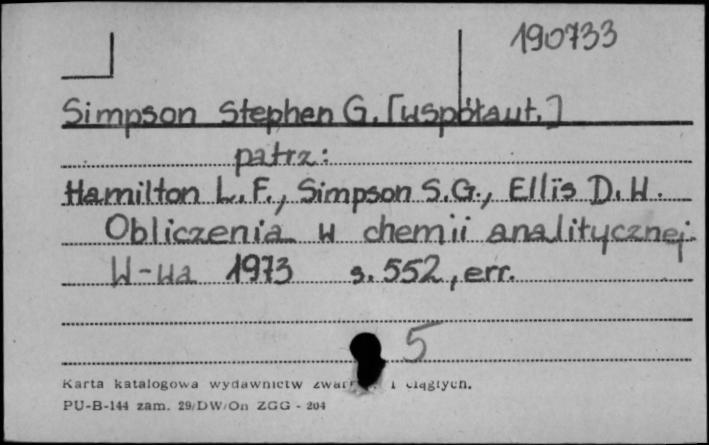 190733
Simpson Stephen G. [współaut.]
patrz:
Hamilton L.F., Simpson S.G., Ellis D.W.
Obliczenia w chemii analitycznej.
W-wa 1973 s. 552, err.
5
Karta katalogowa wydawnictw i ciągłych.
PU-B-144 zam. 29/DW/On ZGG - 204